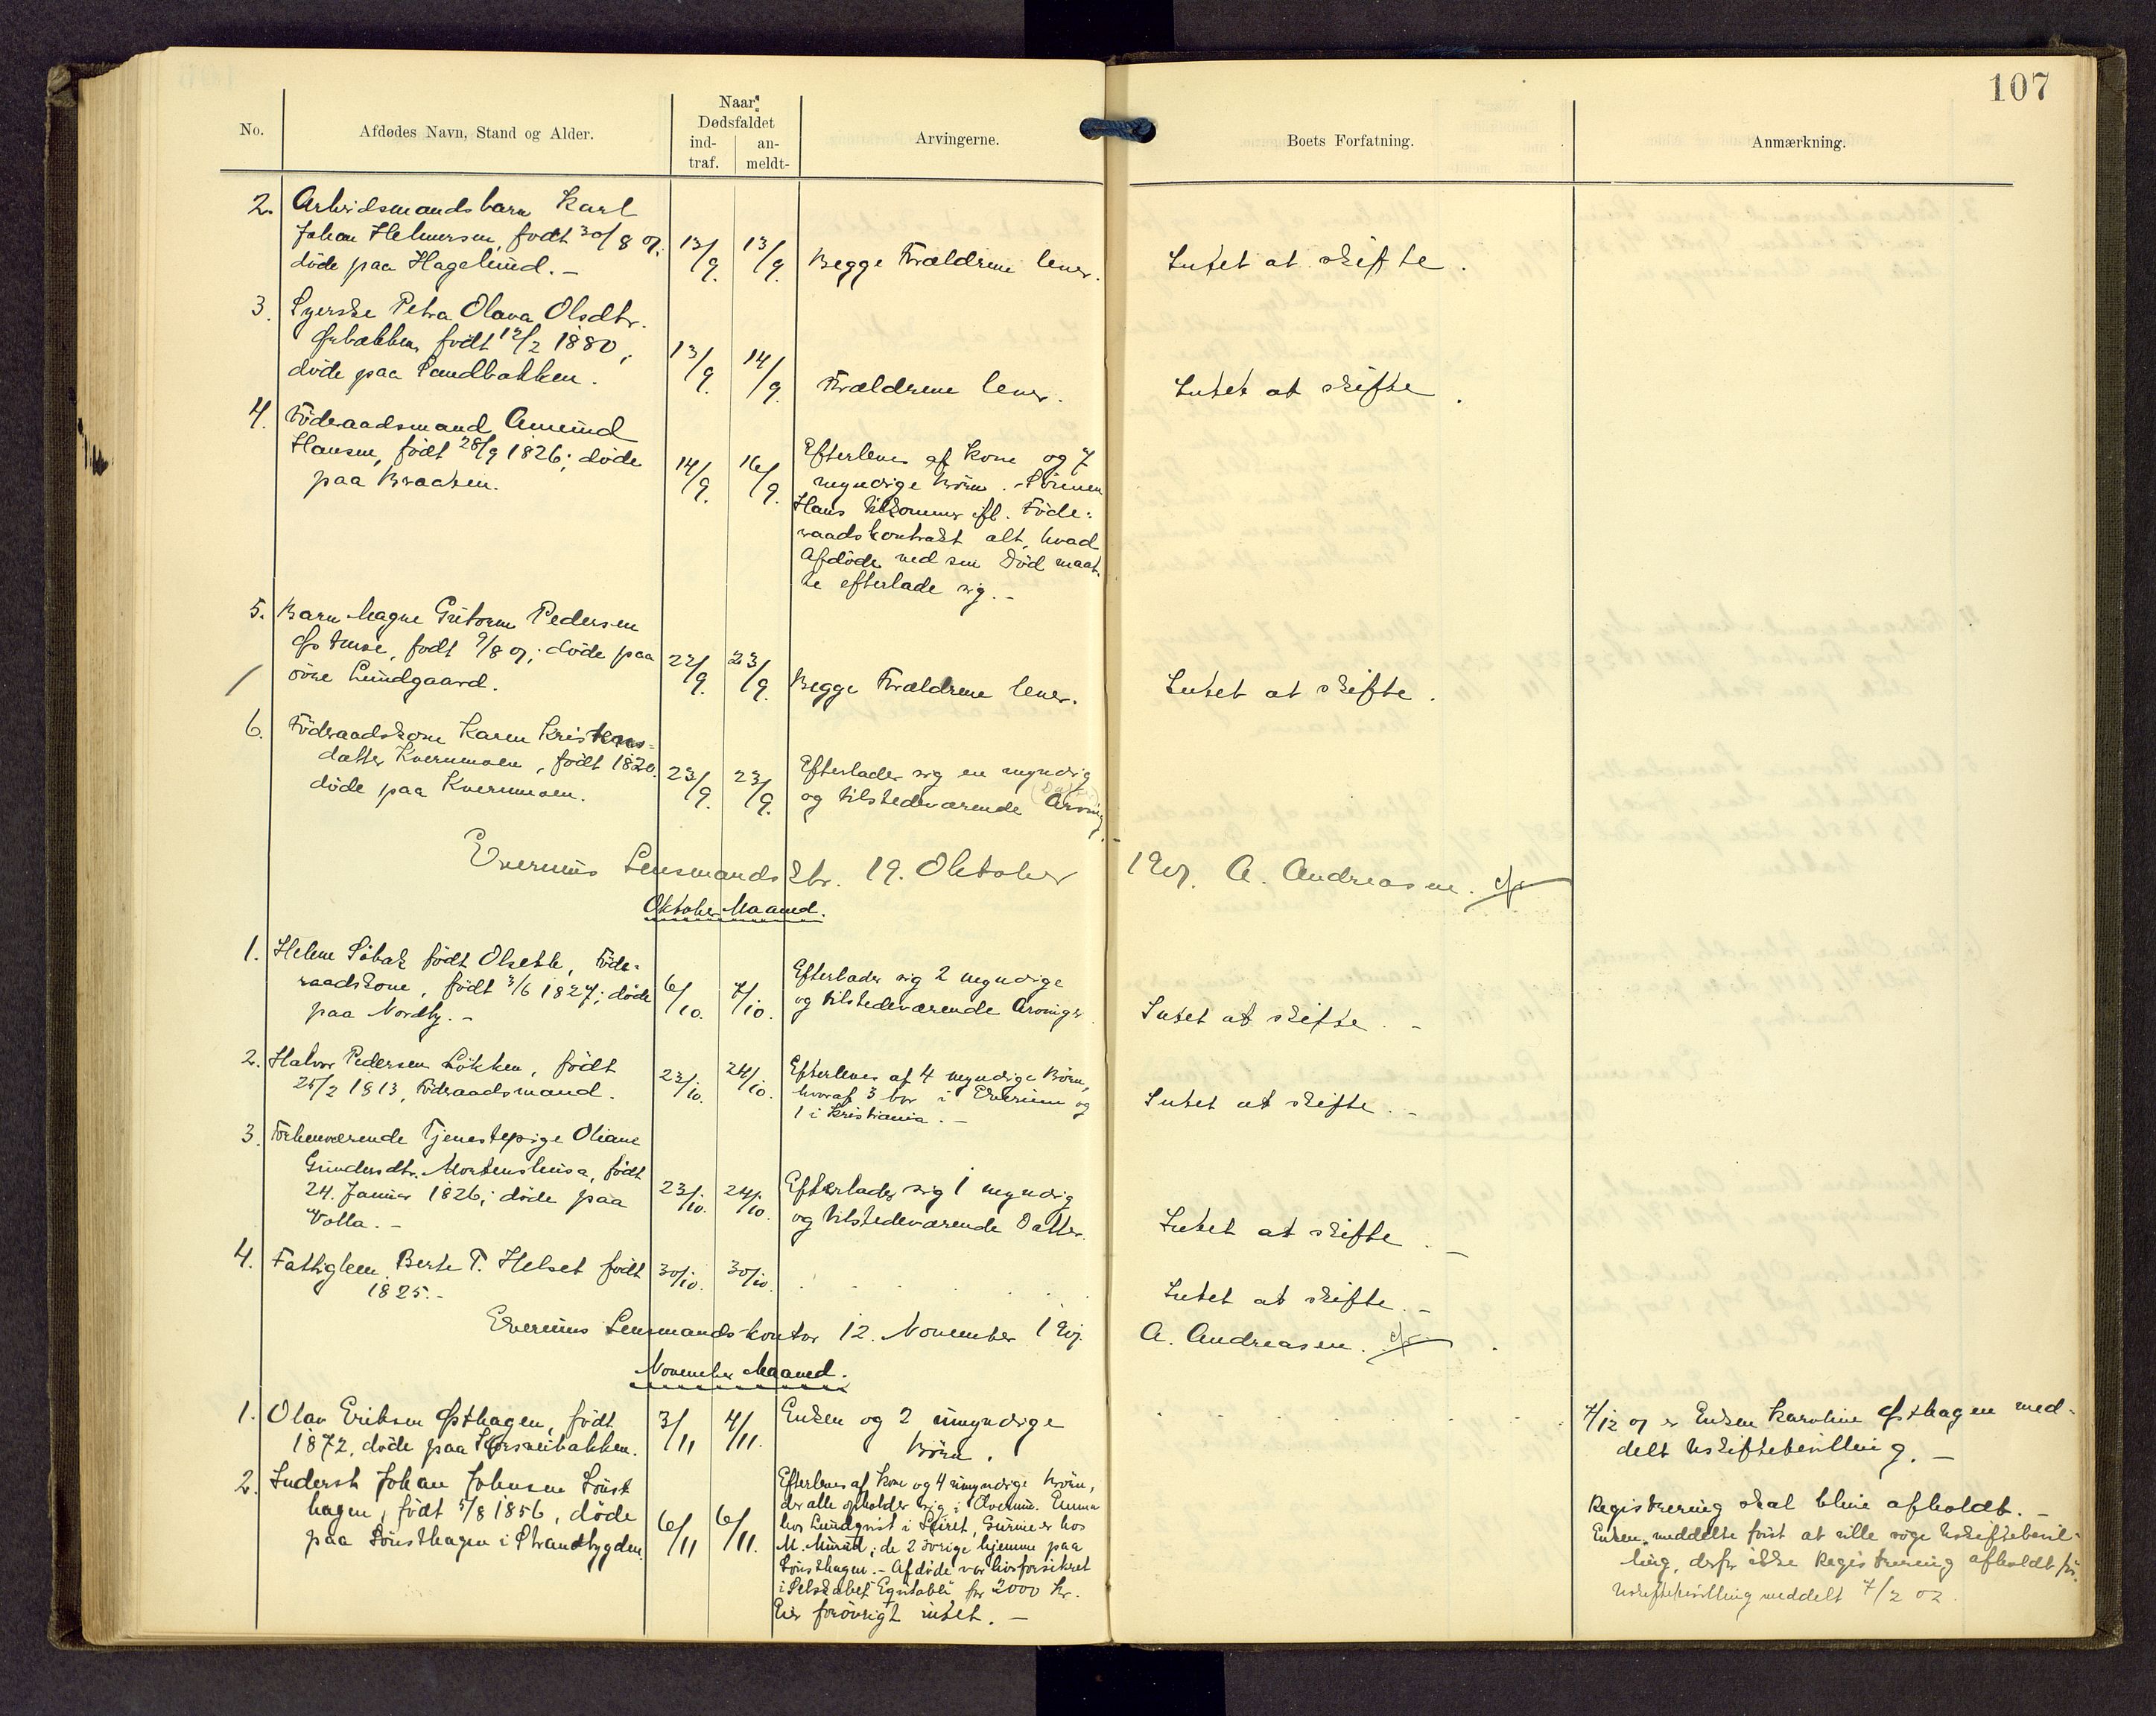 107
No.
Afdødes Navn, Stand og Alder.
Naar
Dødsfaldet
ind-
traf.
an-
meldt-
Arvingerne.
Boets Forfatning.
Anmærkning.
2. Arbeidsmandsbarn Karl
Johan Helmersen, født 30/8 07;
døde paa Hagelund. -
13/9. 13/9.
Begge Forældrene lever.
Intet at skifte.
3. Syerske Petra Olava Olsdtr.
født 12/2 1880,
døde paa Sandbakken.
13/9. 14/9.
Forældrene lever.
Intet at skifte.
4. Føderaadsmand Amund
Hansen, født 28/9 1826; døde
paa Braaten.
14/9. 16/9.
Efterleves af Kone og 7
myndige Børn. - Sønnen
Hans tilkommer ifl. Føde-
raadskontrakt alt, hvad
Afdøde ved sin Død maat-
te efterlade sig. -
5. Barn Magne Gutorm Pedersen
født 9/8 07; døde paa
øvre Lundgaard.
22/9. 23/9.
Begge Forældrene lever.
Intet at skifte.
6. Føderaadskone Karen Kristens-
datter Kvernmoen, født 1820.
døde paa Kvernmoen.
23/9. 23/9.
Efterlader sig en myndig
og tilstedeværende Arving
Elverums Lensmandsktr. 19. Oktober 1907. A. Andreasen.
Oktober Maaned.
1. Helene Søbak født Olseth, Føde-
raadskone, født 3/6 1827; døde
paa Nordby. -
6/10. 7/10.
Efterlader sig 2 myndige
og tilstedeværende Arvinger
Intet at skifte. -
2. Halvor Pedersen Løkken, født
25/2 1813, Føderaadsmand.
23/10. 24/10.
Efterleves af 4 myndige Børn,
hvoraf 3 bor i Elverum og
1 i Kristiania. -
Intet at skifte. -
3. Forhenværende Tjenestepige Oliane
Gundersdtr. Mortenshusa, født
24. Januar 1826; døde paa
Volla. -
23/10. 24/10.
Efterlader sig 1 myndig
og tilstedeværende Datter.
Intet at skifte. -
4. Fattiglem Berte T. Helset født
1825. -
30/10. 30/10.
Intet at skifte. -
Elverums Lensmandskontor 12. November 1907. A. Andreasen.
November Maaned.
1. Olav Eriksen Østhagen, født
1872, døde paa
3/11 4/11.
Enken og 2 umyndige
Børn.
7/12 07 er Enken Karoline Østhagen med-
delt Uskiftebevilling. -
2. Inderst Johan Johnsen Sønst
hagen, født 5/8 1856, døde
paa Sønsthagen i Strandbygden
6/11 6/11.
Efterleves af Kone og 4 umyndige Børn,
der alle opholder sig i Elverum. Emma
hos Lundqvist i Leiret, hos
M. de 2 øvrige hjemme paa
Sønsthagen. - Afdøde var livsforsikret
i Selskabet for 2000 Kr.
Eier forøvrigt intet. -
Registrering skal blive afholdt. -
Enken meddelte først at ville søge Uskiftebevil-
ling, derfor ikke Registrering afholdt før.
Uskiftebevilling meddelt 7/2 02